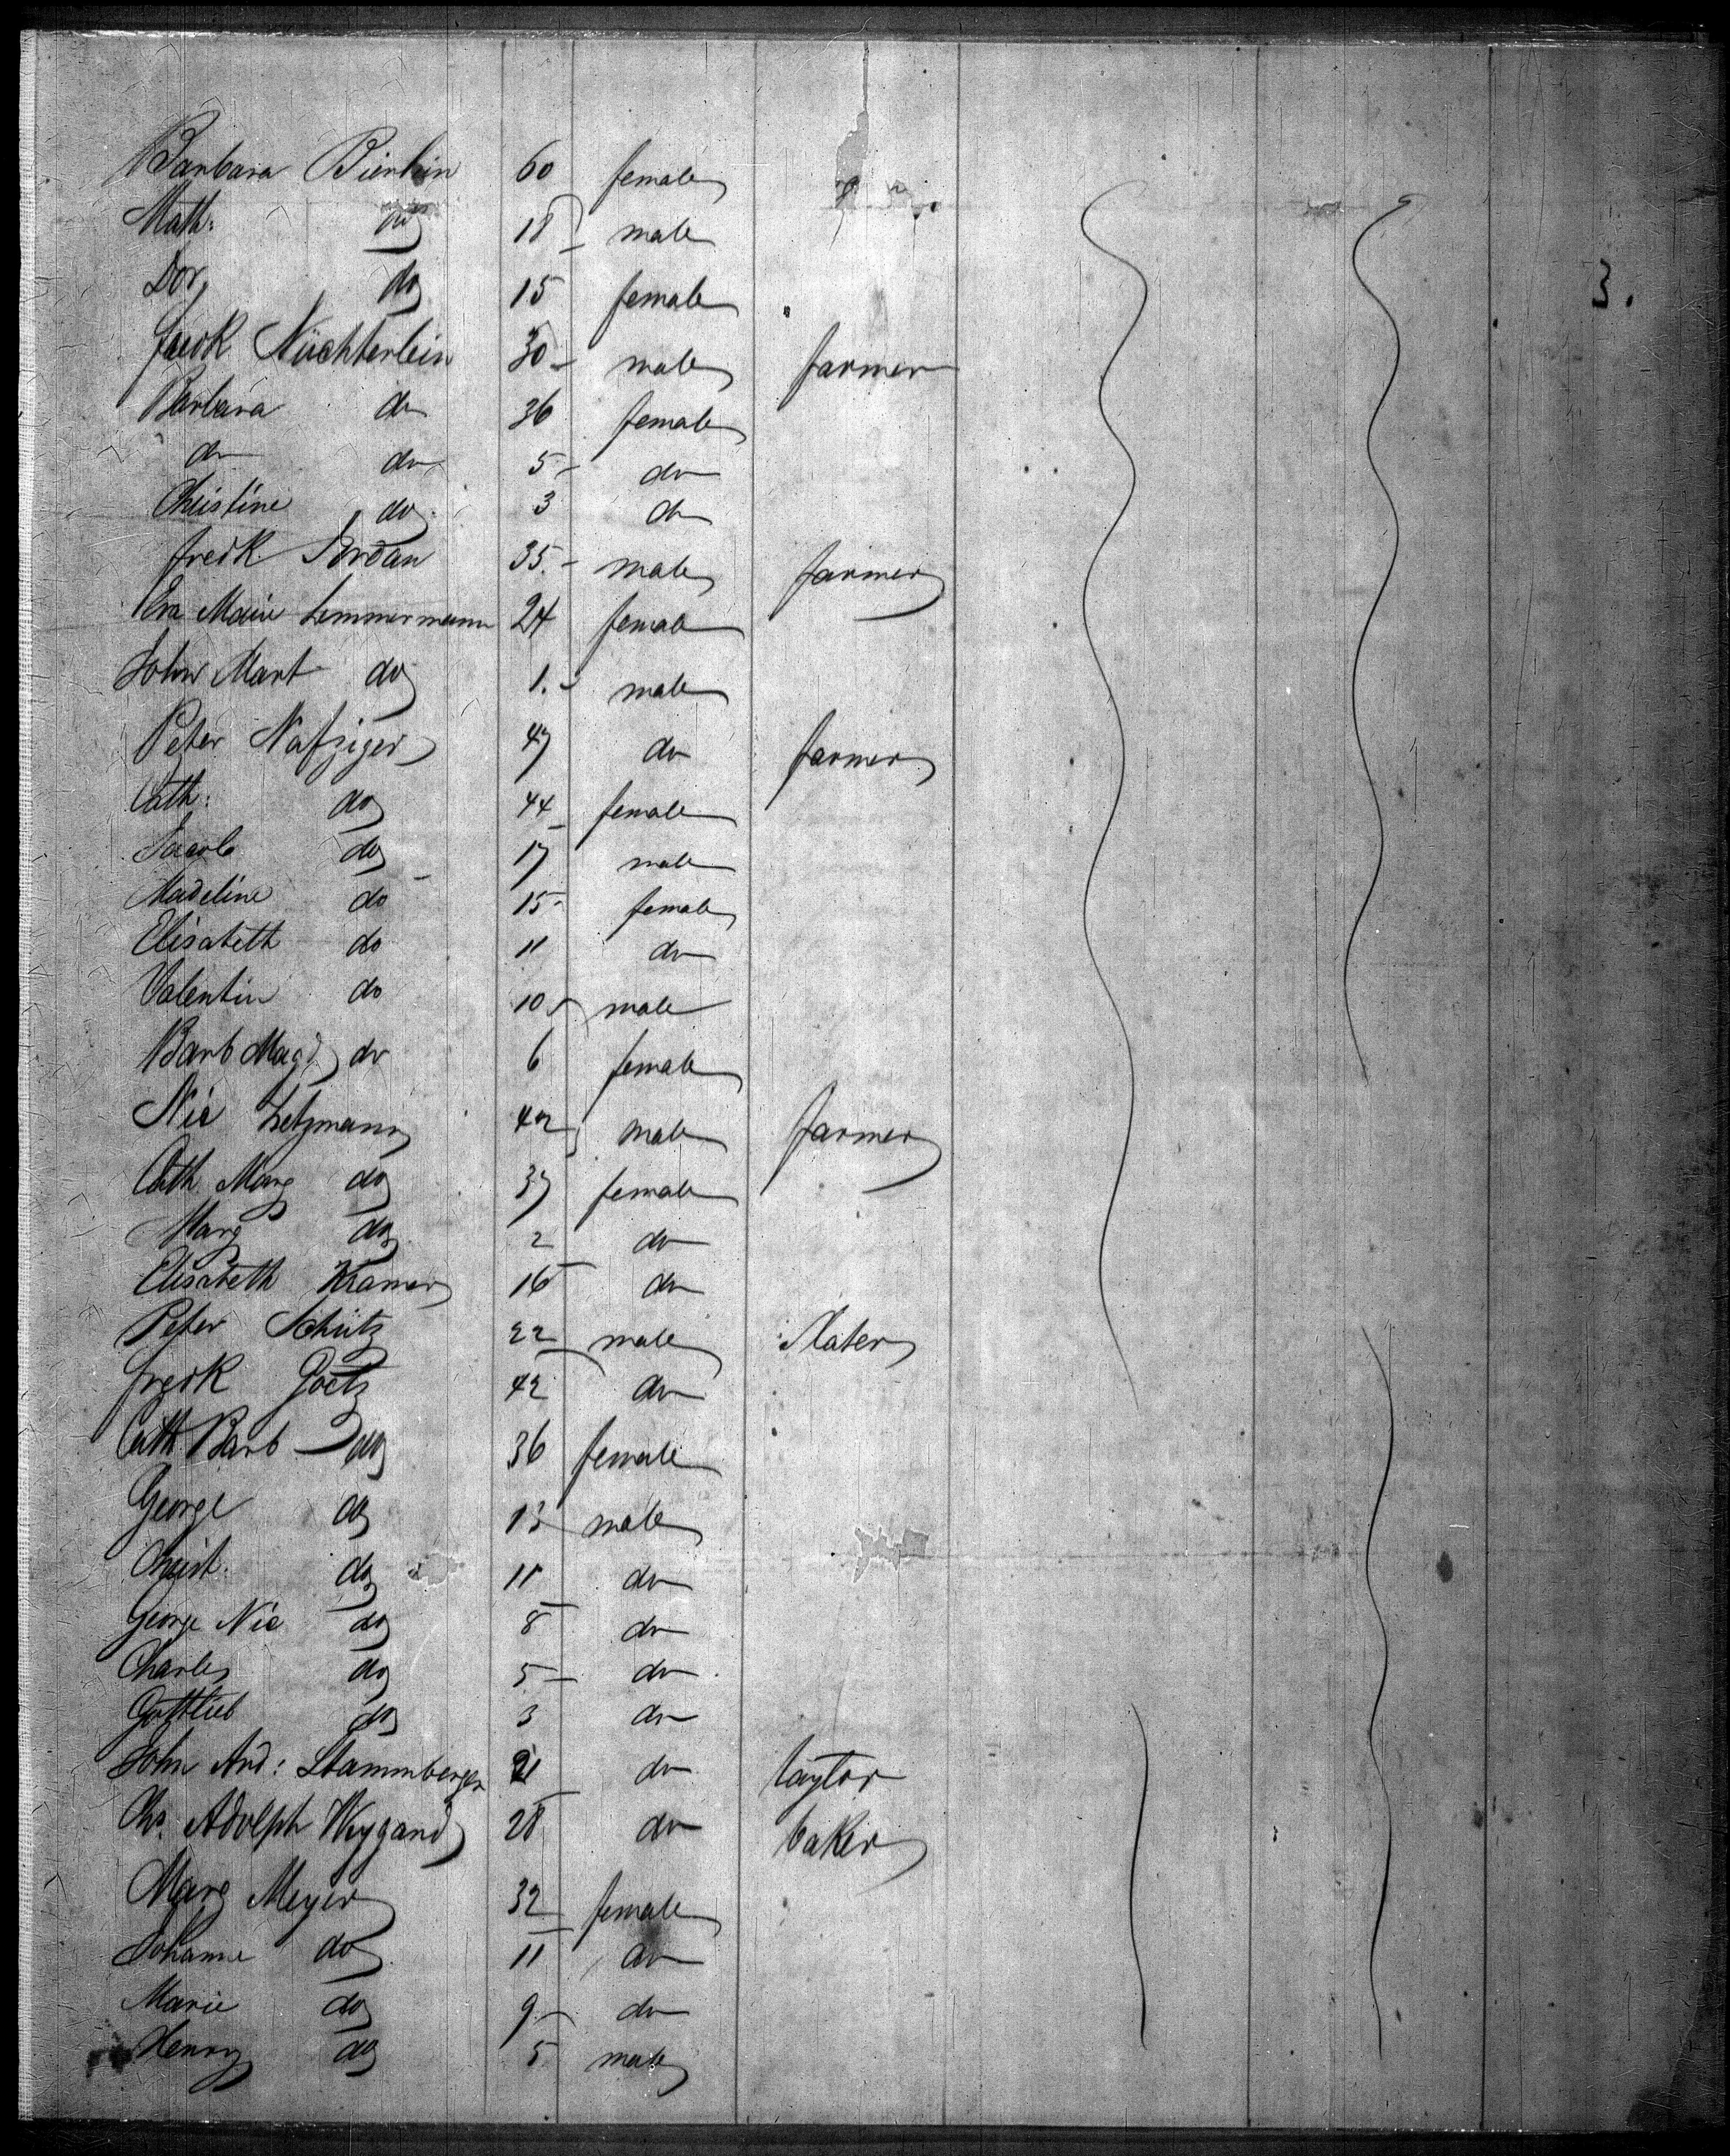 Barbara Bierlein 60 female
Math: do 18 male
Dor. do 15 female
3.
fredk Nüchterlein 30 male farmer
Barbara do 36 female
do do 5 do
Christine do 3 do
fredk Jordan 35. male farmer
Eva Marie Lemmermann 24 female
John Mart do 1. male
Peter Nafziger 47 do farmer
Cath: do 44 female
Jacob do 17 male
Madeline do 15 female
Elisabeth do 11 do
Valentin do 10 male
Barb Magd do 6 female
Nic Letzmann 42 male farmer
Cath Marg do 37 female
Marg do 2 do
Elisabeth Kramer 16 do
Peter Schütz 22 male Slater
fredk Goetz 42 do
Cath Barb do 36 female
George do 13 male
Christ. do 11 do
George Nic do 8 do
Charles do 5 do
Gottlieb do 3 do
John And: Stammberger 21 do taylor
Chs. Adolph Weygand 28 do baker
Marg Meyer 32 female
Johanne do 11 do
Marie do 9 do
Henry do 5 male